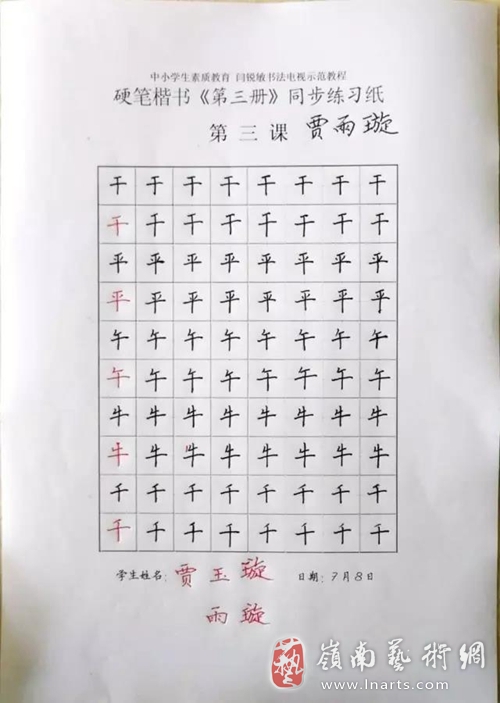 中小学生素质教育 闫锐敏书法电视示范教程
硬笔楷书《第三册》同步练习纸
第三课 贾雨璇
干干干干干干干干
干干干干干干干干
平平平平平平平平
平平平平平平平平
午午午午午午午午
午午午午午午午午
牛牛牛牛牛牛牛牛
牛牛牛牛牛牛牛牛
千千千千千千千千
千千千千千千千千
学生姓名: 贾玉璇 日期: 7月8日
雨璇
藝 嶺南藝術網
www.lnarts.com